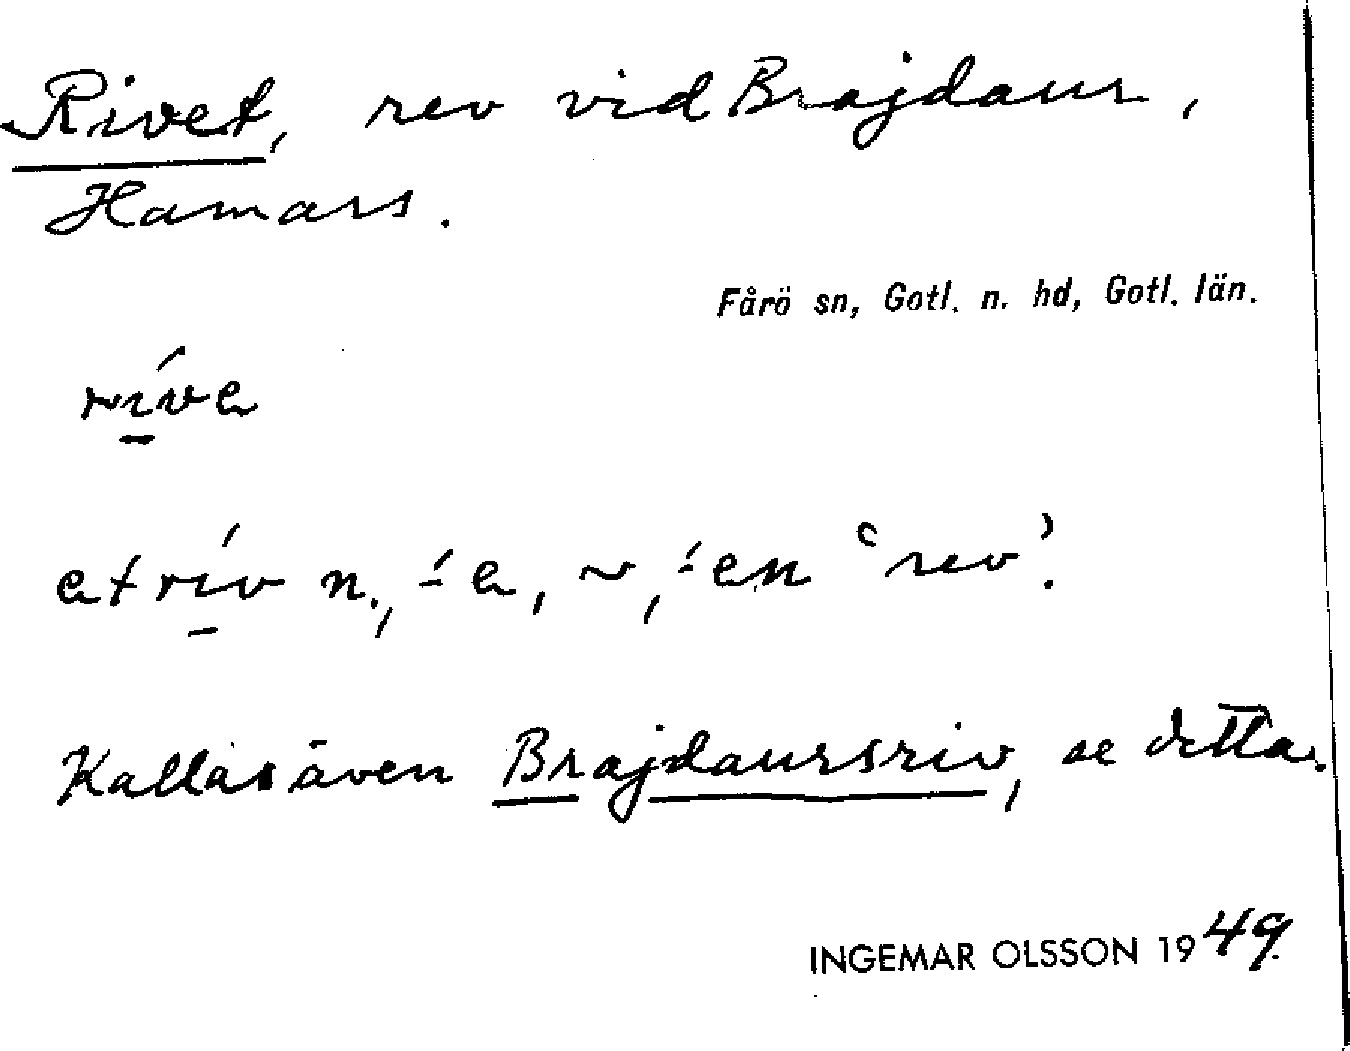 Rivet, rev vid Brajdaur,
Hamars.
Fårö sn, Gotl. n. hd, Gotl. län.
ríve
et rív n., -́e, ~, -́en "rev".
Kallas även Brajdaursriv, se detta.
INGEMAR OLSSON 1949